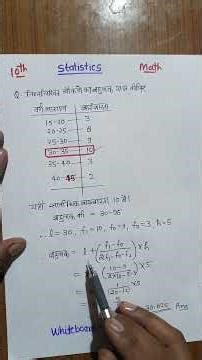 10th Statistics Math
Q. निम्नलिखित आँकड़ों का बहुलक ज्ञात कीजिए
वर्ग अन्तराल बारंबारता
15-20 3
20-25 8
25-30 9
30-35 10
25-40 3
40-45 2
यहाँ अधिकतम बारंबारता 10 है।
बहुलक वर्ग = 30-35
∴ l=30, f₁=10, f₀=9, f₂=3, h=5
बहुलक = l + (f₁-f₀ / 2f₁-f₀-f₂) × h
10-9 ×5
= 1 ×5
= 30.625 Ans
Whiteboard